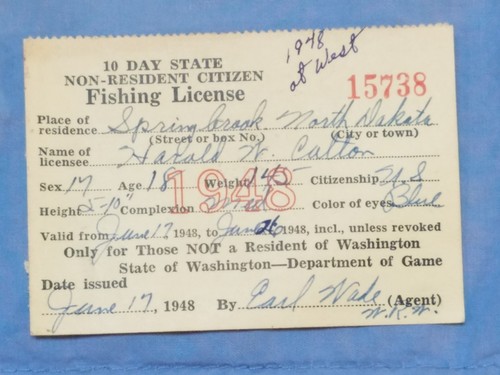 1948
at West
10 DAY STATE
NON-RESIDENT CITIZEN
Fishing License
15738
Place of residence Springbrook North Dakota
(Street or box No.) (City or town)
Name of licensee Harold W. Catton
Sex M Age 18 Weight 145 Citizenship U.S
1948
Height 5-10" Complexion Med Color of eyes Blue
Valid from June 17 1948, to June 26 1948, incl., unless revoked
Only for Those NOT a Resident of Washington
State of Washington—Department of Game
Date issued
June 17, 1948 By Earl Wade (Agent)
W.R.W.